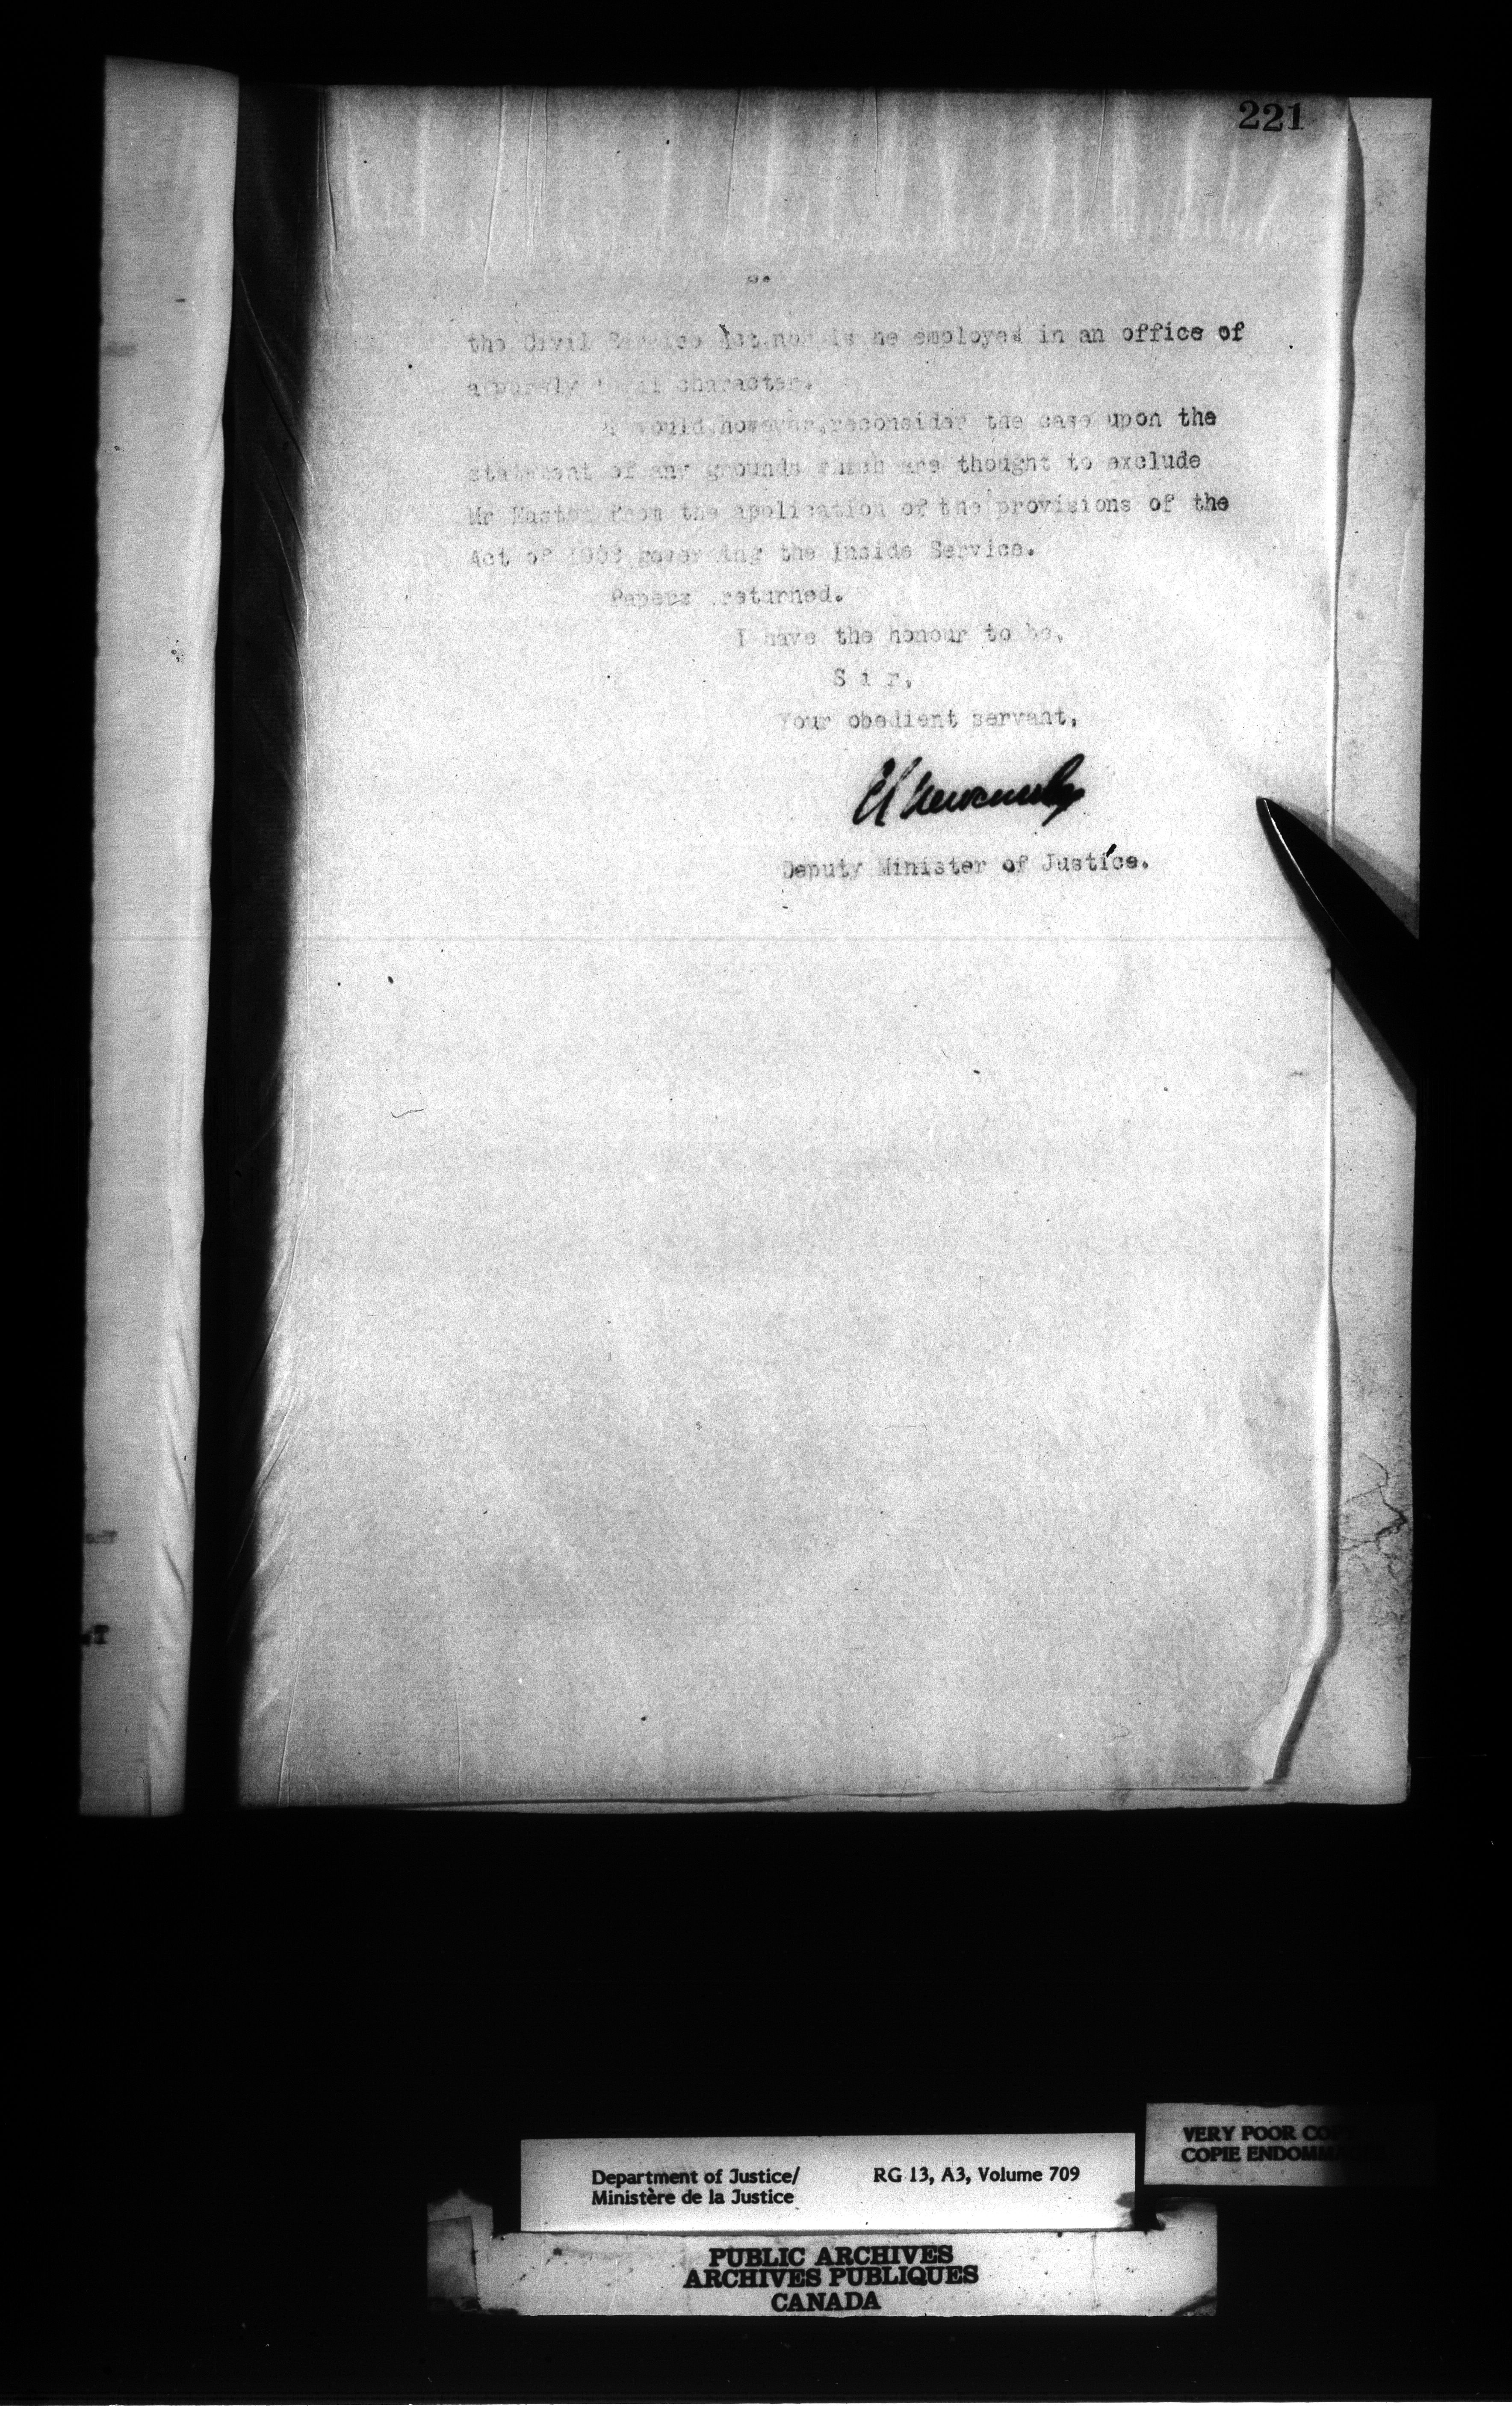 221
2.
the Civil Service Act, nor is he employed in an office of
a purely character.
I would, however, reconsider the case upon the
statement of any grounds which are thought to exclude
Mr from the application of the provisions of the
Act of 1908 governing the Inside Service.
Papers returned.
I have the honour to be,
S i r,
Your obedient servant,
Newcombe
Deputy Minister of Justice.
VERY POOR COP
COPIE ENDOMMA
Department of Justice/ RG 13, A3, Volume 709
Ministère de la Justice
PUBLIC ARCHIVES
ARCHIVES PUBLIQUES
CANADA